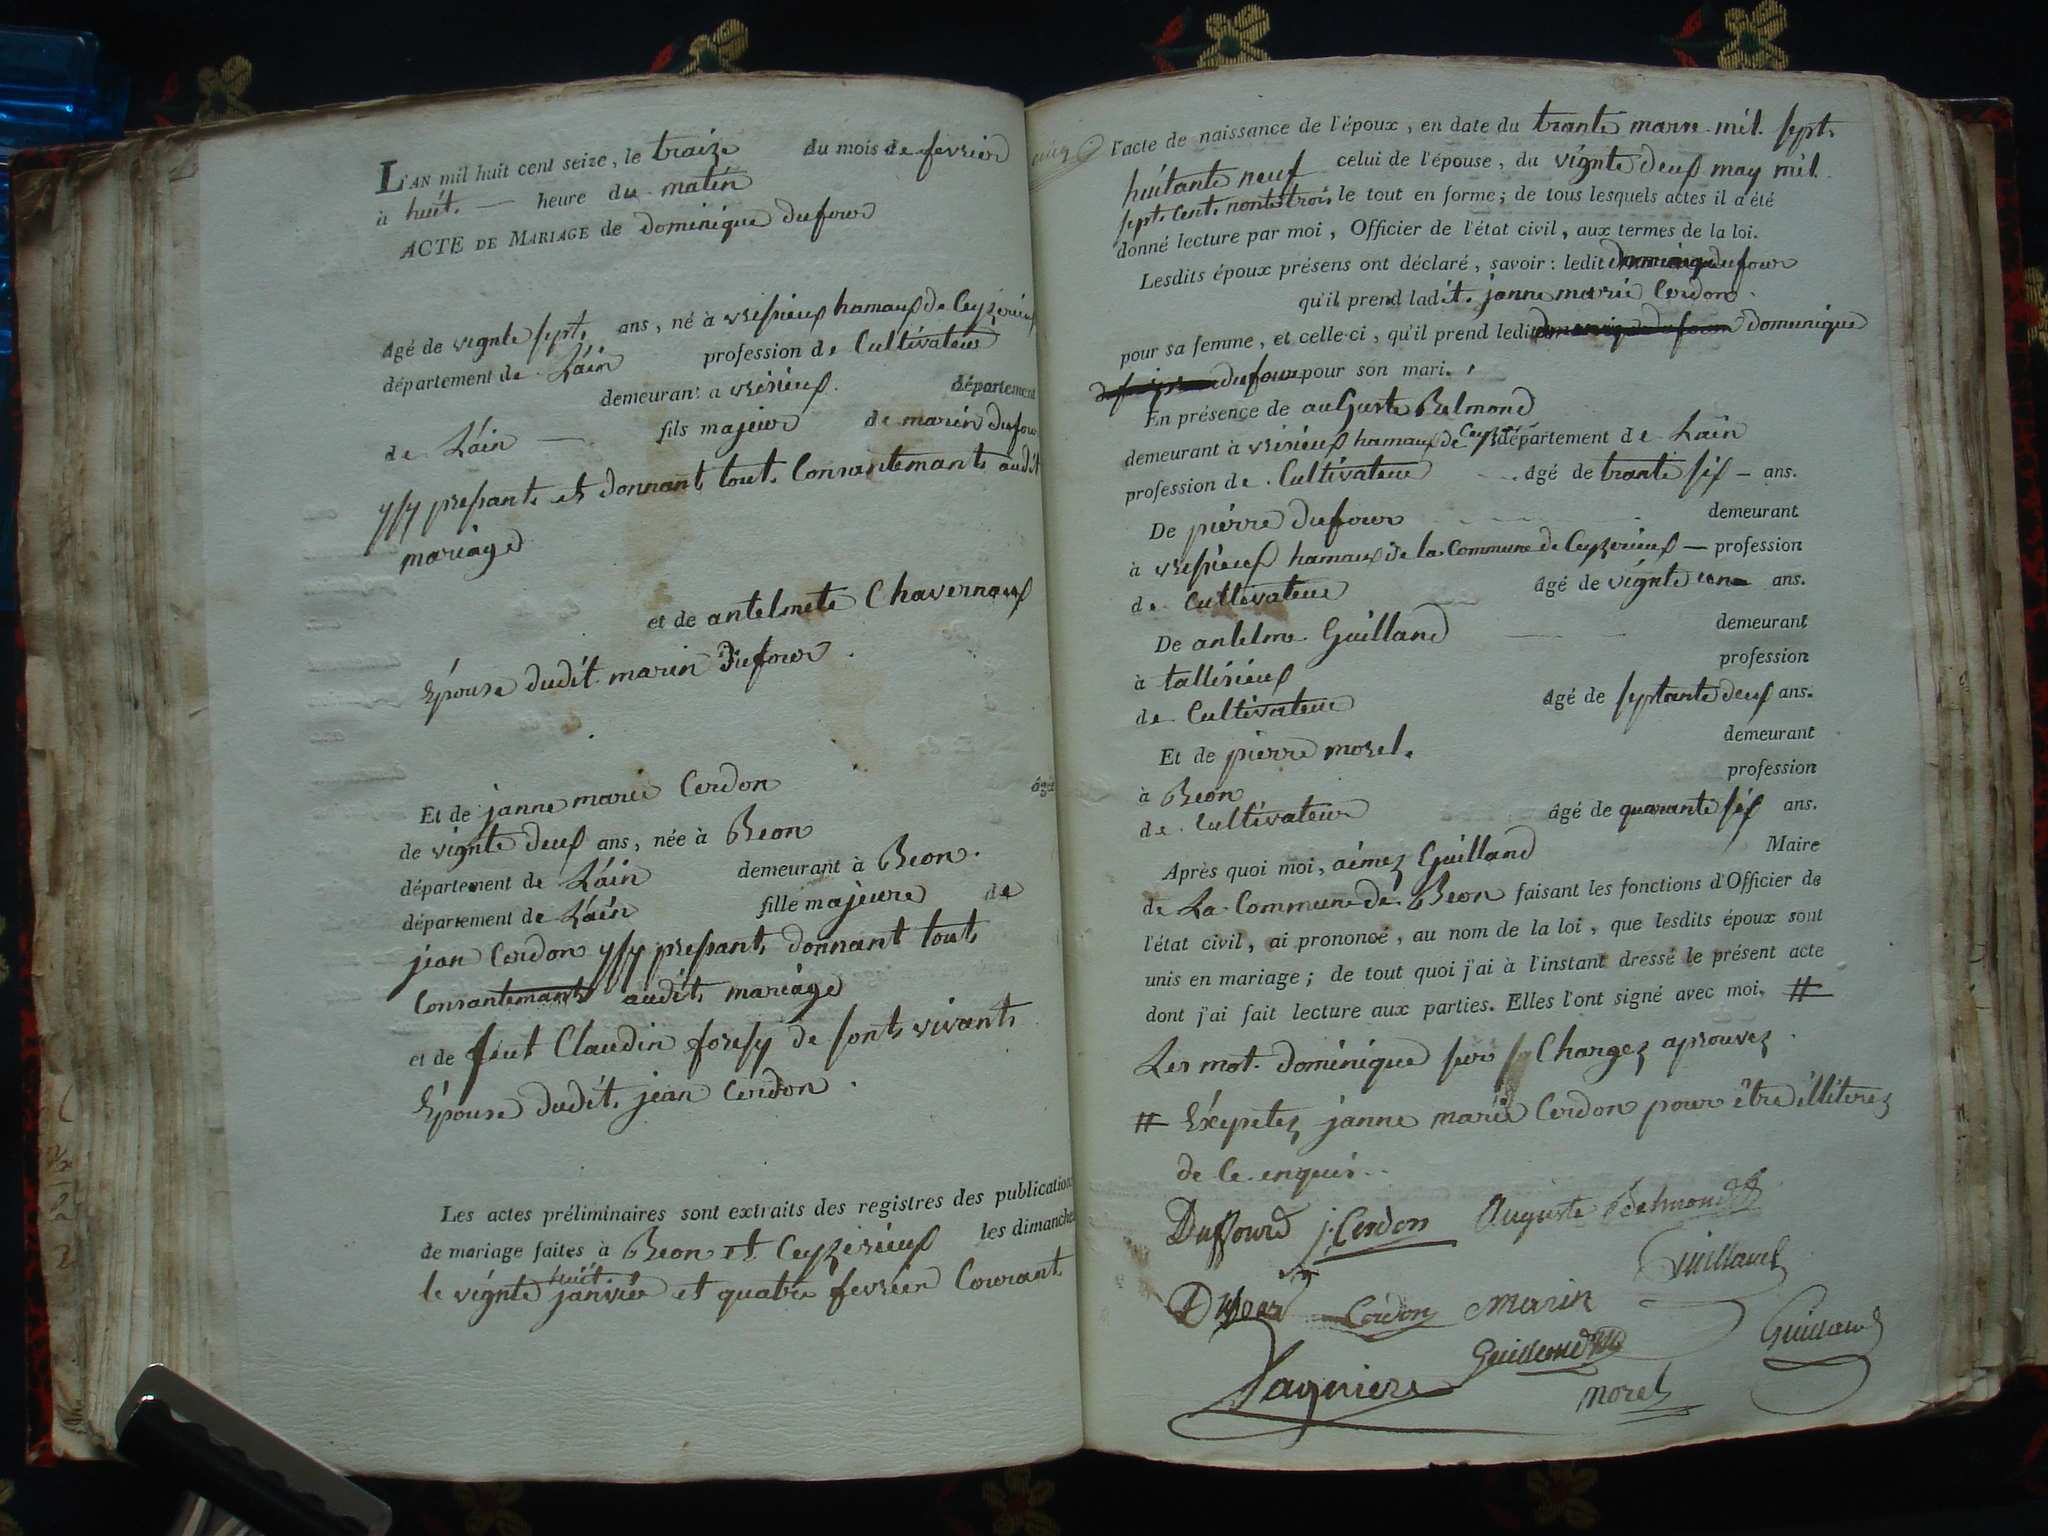 L'AN mil huit cent seize, le traize du mois de fevrier
à huit heure du matin
ACTE DE MARIAGE de dominique dufour
âgé de vignte sept ans, né à vrisieux hamaux de Ceyzerieux
département de Láin profession de Cultivateur
demeurant a vrisieux département
de Láin fils majeur de marin dufour
ysy presant et donnant tout Consantemant audit
mariage
et de antelmete Chavernoux
Épouse dudit marin Dufour.
Et de janne marie Cerdon âgée
de vignte deux ans, née à Beon
département de Láin demeurant à Beon.
département de Láin fille majeure de
jean Cerdon ysy presant donnant tout
Consantemant audit mariage
et de feut Claudin de sont vivant
Épouse dudit jean Cerdon.
Les actes préliminaires sont extraits des registres des publications
de mariage faites à Beon et Ceyzerieux les dimanches
le vignte huit janvier et quatre fevrier Courant
l'acte de naissance de l'époux, en date du trante mars mil sept
huitante neuf celui de l'épouse, du vignte deux may mil
sept cent nonte trois le tout en forme; de tous lesquels actes il a été
donné lecture par moi, Officier de l'état civil, aux termes de la loi.
Lesdits époux présens ont déclaré, savoir: ledit dominique dufour
qu'il prend ladit. janne marie Cerdon.
pour sa femme, et celle-ci, qu'il prend ledit domenique
dufour pour son mari.
En présence de auGuste Belmond
demeurant à vrisieux hamaux de Ceyz département de Láin
profession de Cultivateur âgé de trante six ans.
De pierre dufour demeurant
à vresieux hamaux de la Commune de Ceyzerieux profession
de Cultivateur âgé de vignte ans.
De antelme Guilland demeurant
à tallisieux profession
de Cultivateur âgé de septante deux ans.
Et de pierre morel. demeurant
à Beon profession
de Cultivateur âgé de quarante six ans.
Après quoi moi, aimez Guilland Maire
de La Commune de Beon faisant les fonctions d'Officier de
l'état civil, ai prononcé, au nom de la loi, que lesdits époux sont
unis en mariage; de tout quoi j'ai à l'instant dressé le présent acte
dont j'ai fait lecture aux parties. Elles l'ont signé avec moi. #
Les mot. dominique sur Chargez aprouvez.
# Exeptez janne marie Cerdon pour être illiterez
de Ce enquis.
Duffourd j. Cerdon Auguste Belmond
Guilland
Dufour Cerdon Marin
Guilland Guilland
Lagniere
morel